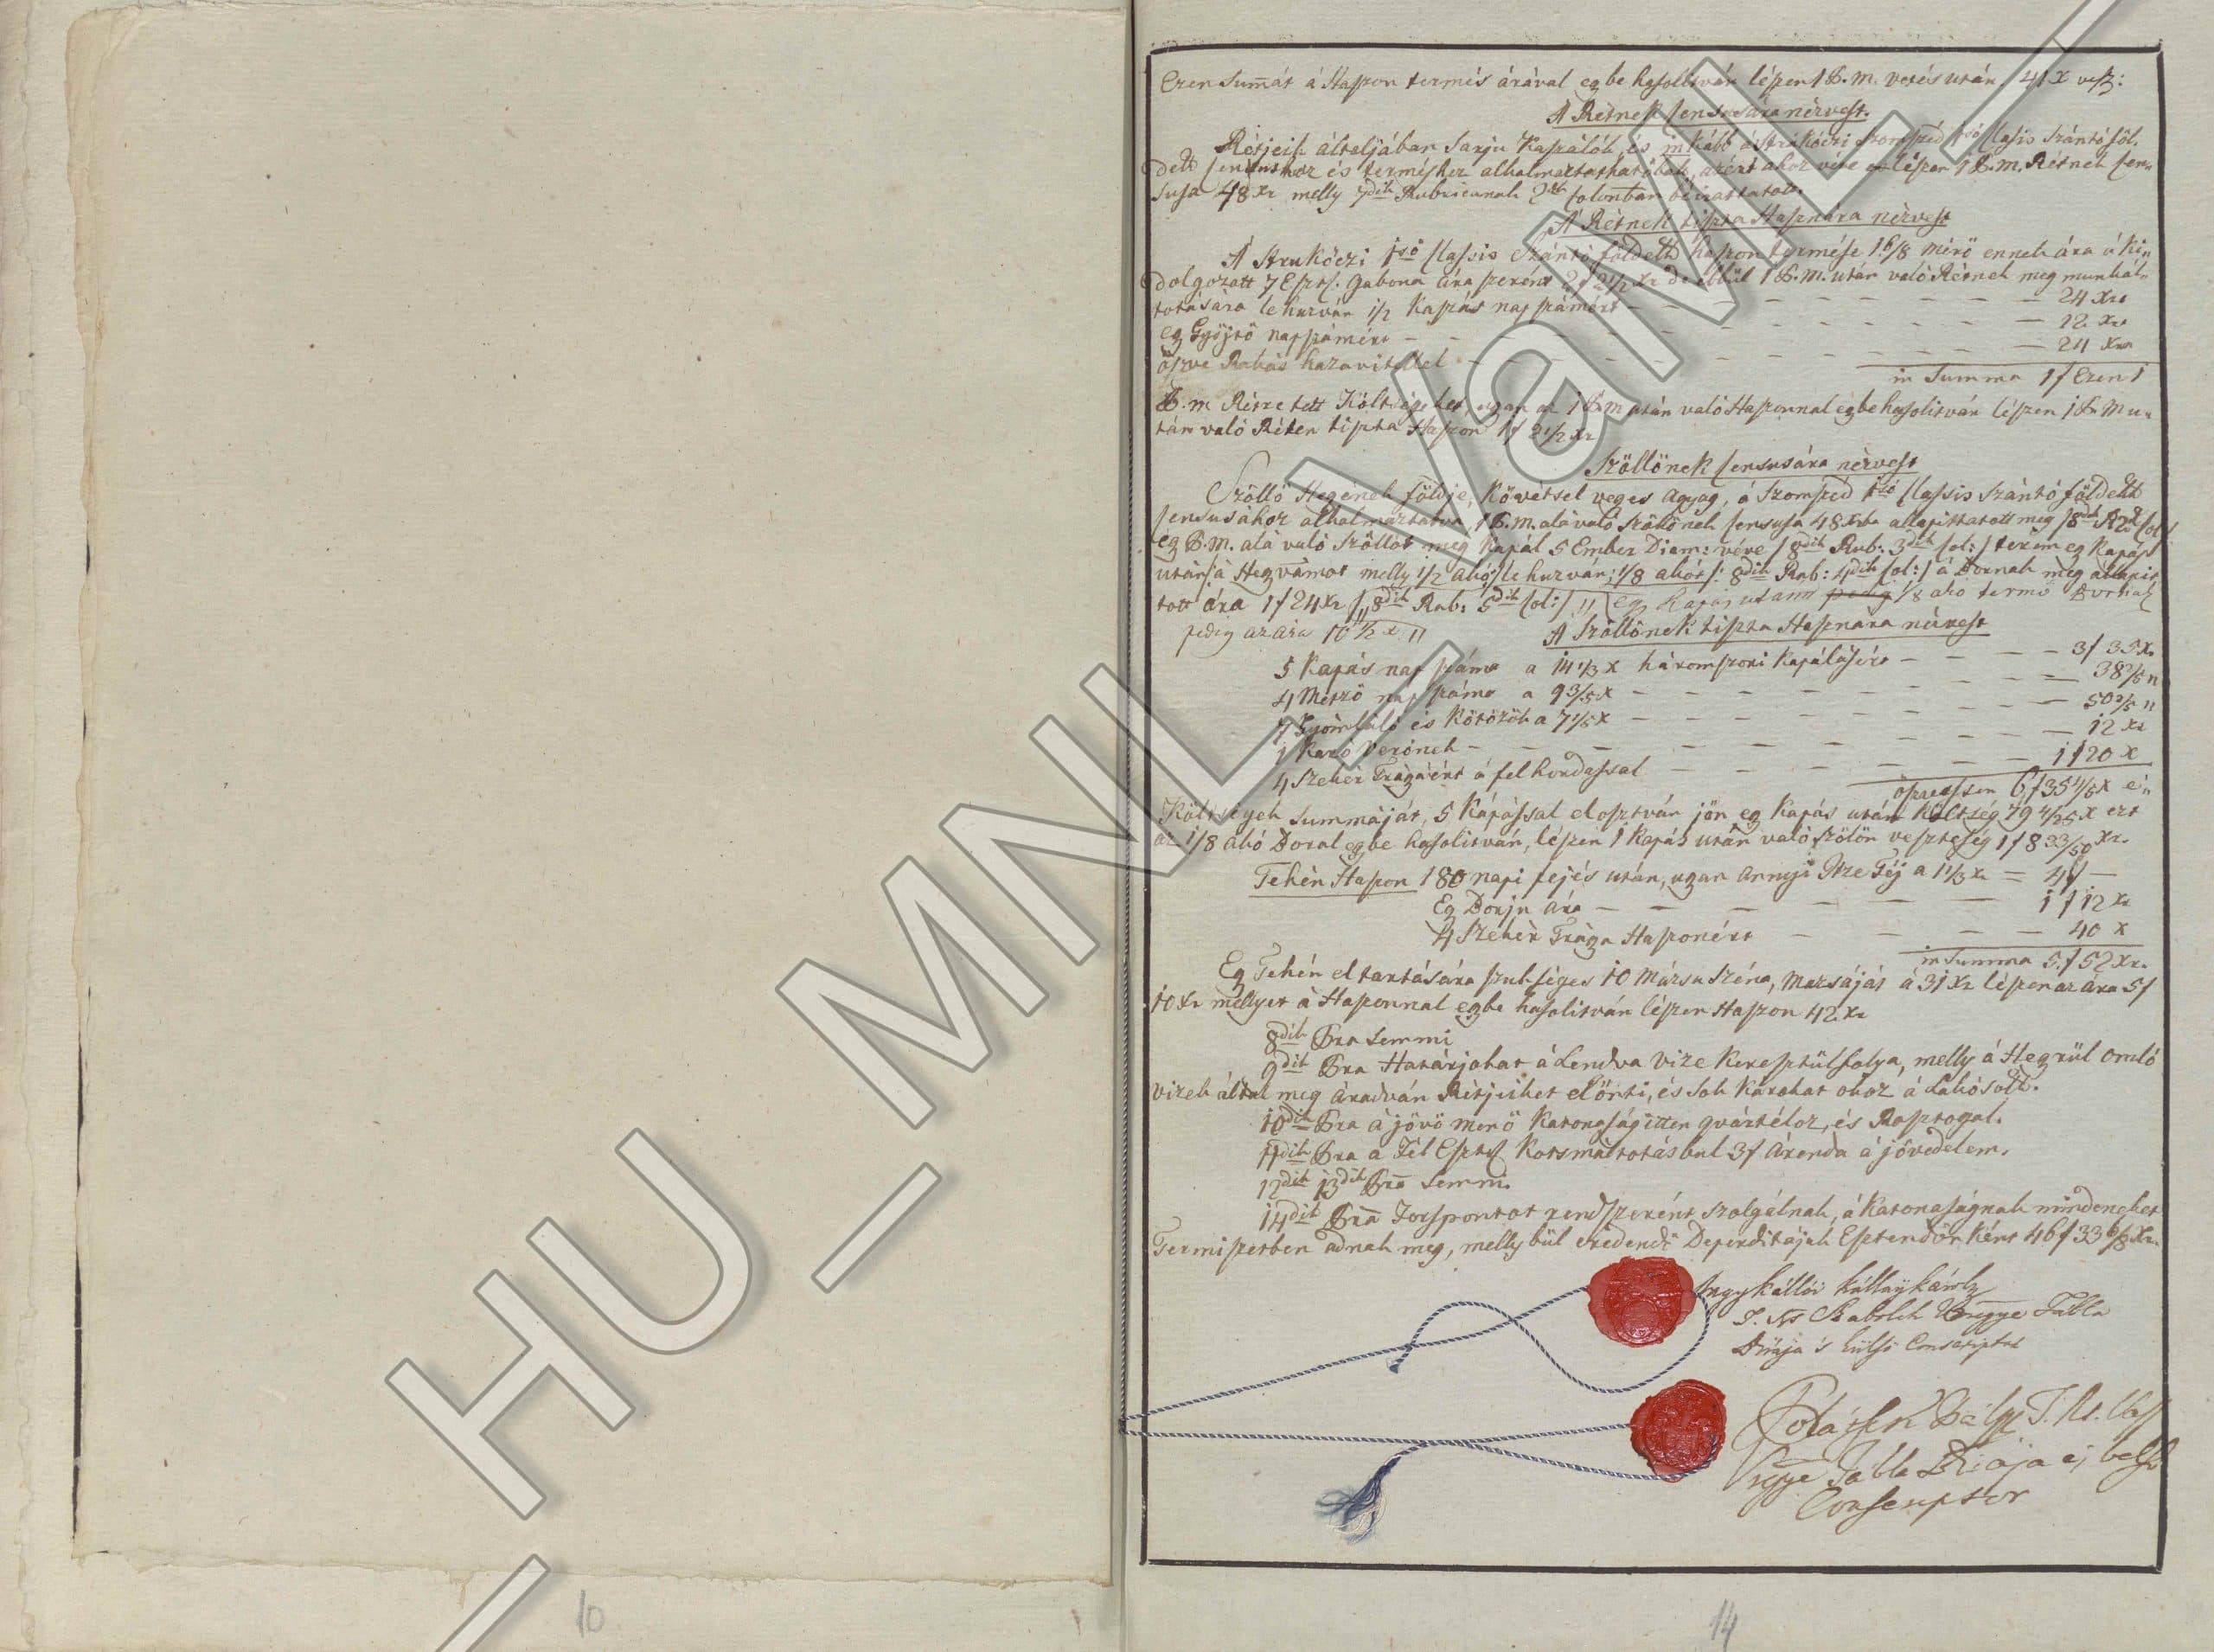 Ezen Summát á Haszon termés árával egbe hasolitván lészen 1 P. m. vetés után 41 x vesz:
A Rétnek Censusára nézvest.
Rétjeik általjában Sarju Kaszálók, és inkább á Strukóczi Szomszéd 1ső Clasis Szántó föl-
dek Censushoz és terméshez alkalmaztathatóbak, azért ahoz véve lészen 1 P. m. Rétnek Cen-
susa 48 xr melly 7dik Rubricanak 2dik Colonban béirattatott.
A Rétnek tiszta Hasznára nézvest
A Strukóczi 1ső Classis Szántó földek haszon termése 1 6/8 mérő ennek ára á Ki-
dolgozott 7 Eszt. gabona ára szerént 2 f 2 1/2 xr de ebbül 1 P. m. után való Rétnek meg munkál-
tatására le huzván 1/2 Kaszás nap számért — 24 xr
eg Gyöjtő napszámért — 12 xr
öszve Rakás hazavitellel — 24 xr
in Summa 1 f Ezen 1
P. m Rétre tett Költségeket, ugan az 1 P. m után való Haszonnal egbe hasolitván lészen 1 P. M u-
tán való Réten tiszta Haszon 1 f 2 1/2 xr
Szöllőnek Censusára nézvest
Szöllő Hegének földje, Kövétsel veges agyag, á Szomszéd 1ső Classis Szántó földek
Censusához alkalmaztatva, 1 P. m. alá való Szöllőnek Censusa 48 xrba allapittatott meg /8dik R 2dik Col/
eg P. m. alá való Szöllőt meg Kapál 5 Ember Diem: véve /8dik Rub: 3dik Col:/ terem eg Kapás
után /á Hegvámot melly 1/2 akó/ le huzván: 1/8 akót /: 8dik Rub: 4dik Col:/ á Bornak meg allapit
tott ára 1 f 24 xr /8dik Rub: 5dik Col:/ eg Kapás utann pedig 1/8 akó termő Bornak
pedig az ára 10 1/2 x
A Szöllőnek tiszta Hasznára nézvest
5 Kapás nap száma a 14 1/3 x háromszori Kapálásért — 3 f 35 x
4 Metző nap száma a 9 3/5 x — 38 2/5 "
7 Gyomláló és Kötözök a 7 1/5 x — 50 2/5 "
1 Karó Verőnek — 12 xr
4 Szekér Trágáért á fel hordassal — 1 f 20 x
öszvessen 6 f 35 4/5 x é-
Költségek Summáját, 5 Kápással elosztván jön eg Kapás után Költség 79 4/25 x ezt
az 1/8 akó Boral egbe hasolitván, lészen 1 Kapás után való szölön veszteség 1 f 8 33/50 xr.
Tehén Haszon 180 napi fejés után, ugan annyi Itze Téj a 1 1/3 xr = 4 f —
Eg Borju ára — 1 f 12 xr
4 Szekér Trága Haszonért — 40 x
in Summa 5 f 52 xr.
Eg Tehén el tartására szukséges 10 Mázsa Széna, Mazsáját á 31 xr lészen az ára 5 f
10 xr mellyet á Haszonnal egbe hasolitván lészen Haszon 42 xr
8dik Pra Semmi
9dik Pra Határjokat á Lendva vize Keresztülfolya, melly á Hegrül omló
vizek által meg áradván Rétjeiket el önti, és Sok Károkat okoz á Lakósok.
10dik Pra á jövő menő Katonaság itten qvártéloz, és Rasztogal.
11dik Pra á Fél Eszt Kortsmáltotásbul 3 f Árenda á jövedelem.
12dik 13dik Pra Semmi.
14dik Pra Forspontot rendszerént szolgálnak, á Katonaságnak mindeneket
Termiszetben adnak meg, mellybül eredendő Deperditájuk Esztendőnként 46 f 33 6/8 xr.
Nagykállói Kállay Károly
T. Ns Szabolch Vármegye Tábla
Birája 's külső Conscriptor
T. Ns. Vas
Vgye Tábla Birája és belső
Conscriptor
10
14
HU_MNL_VaML_